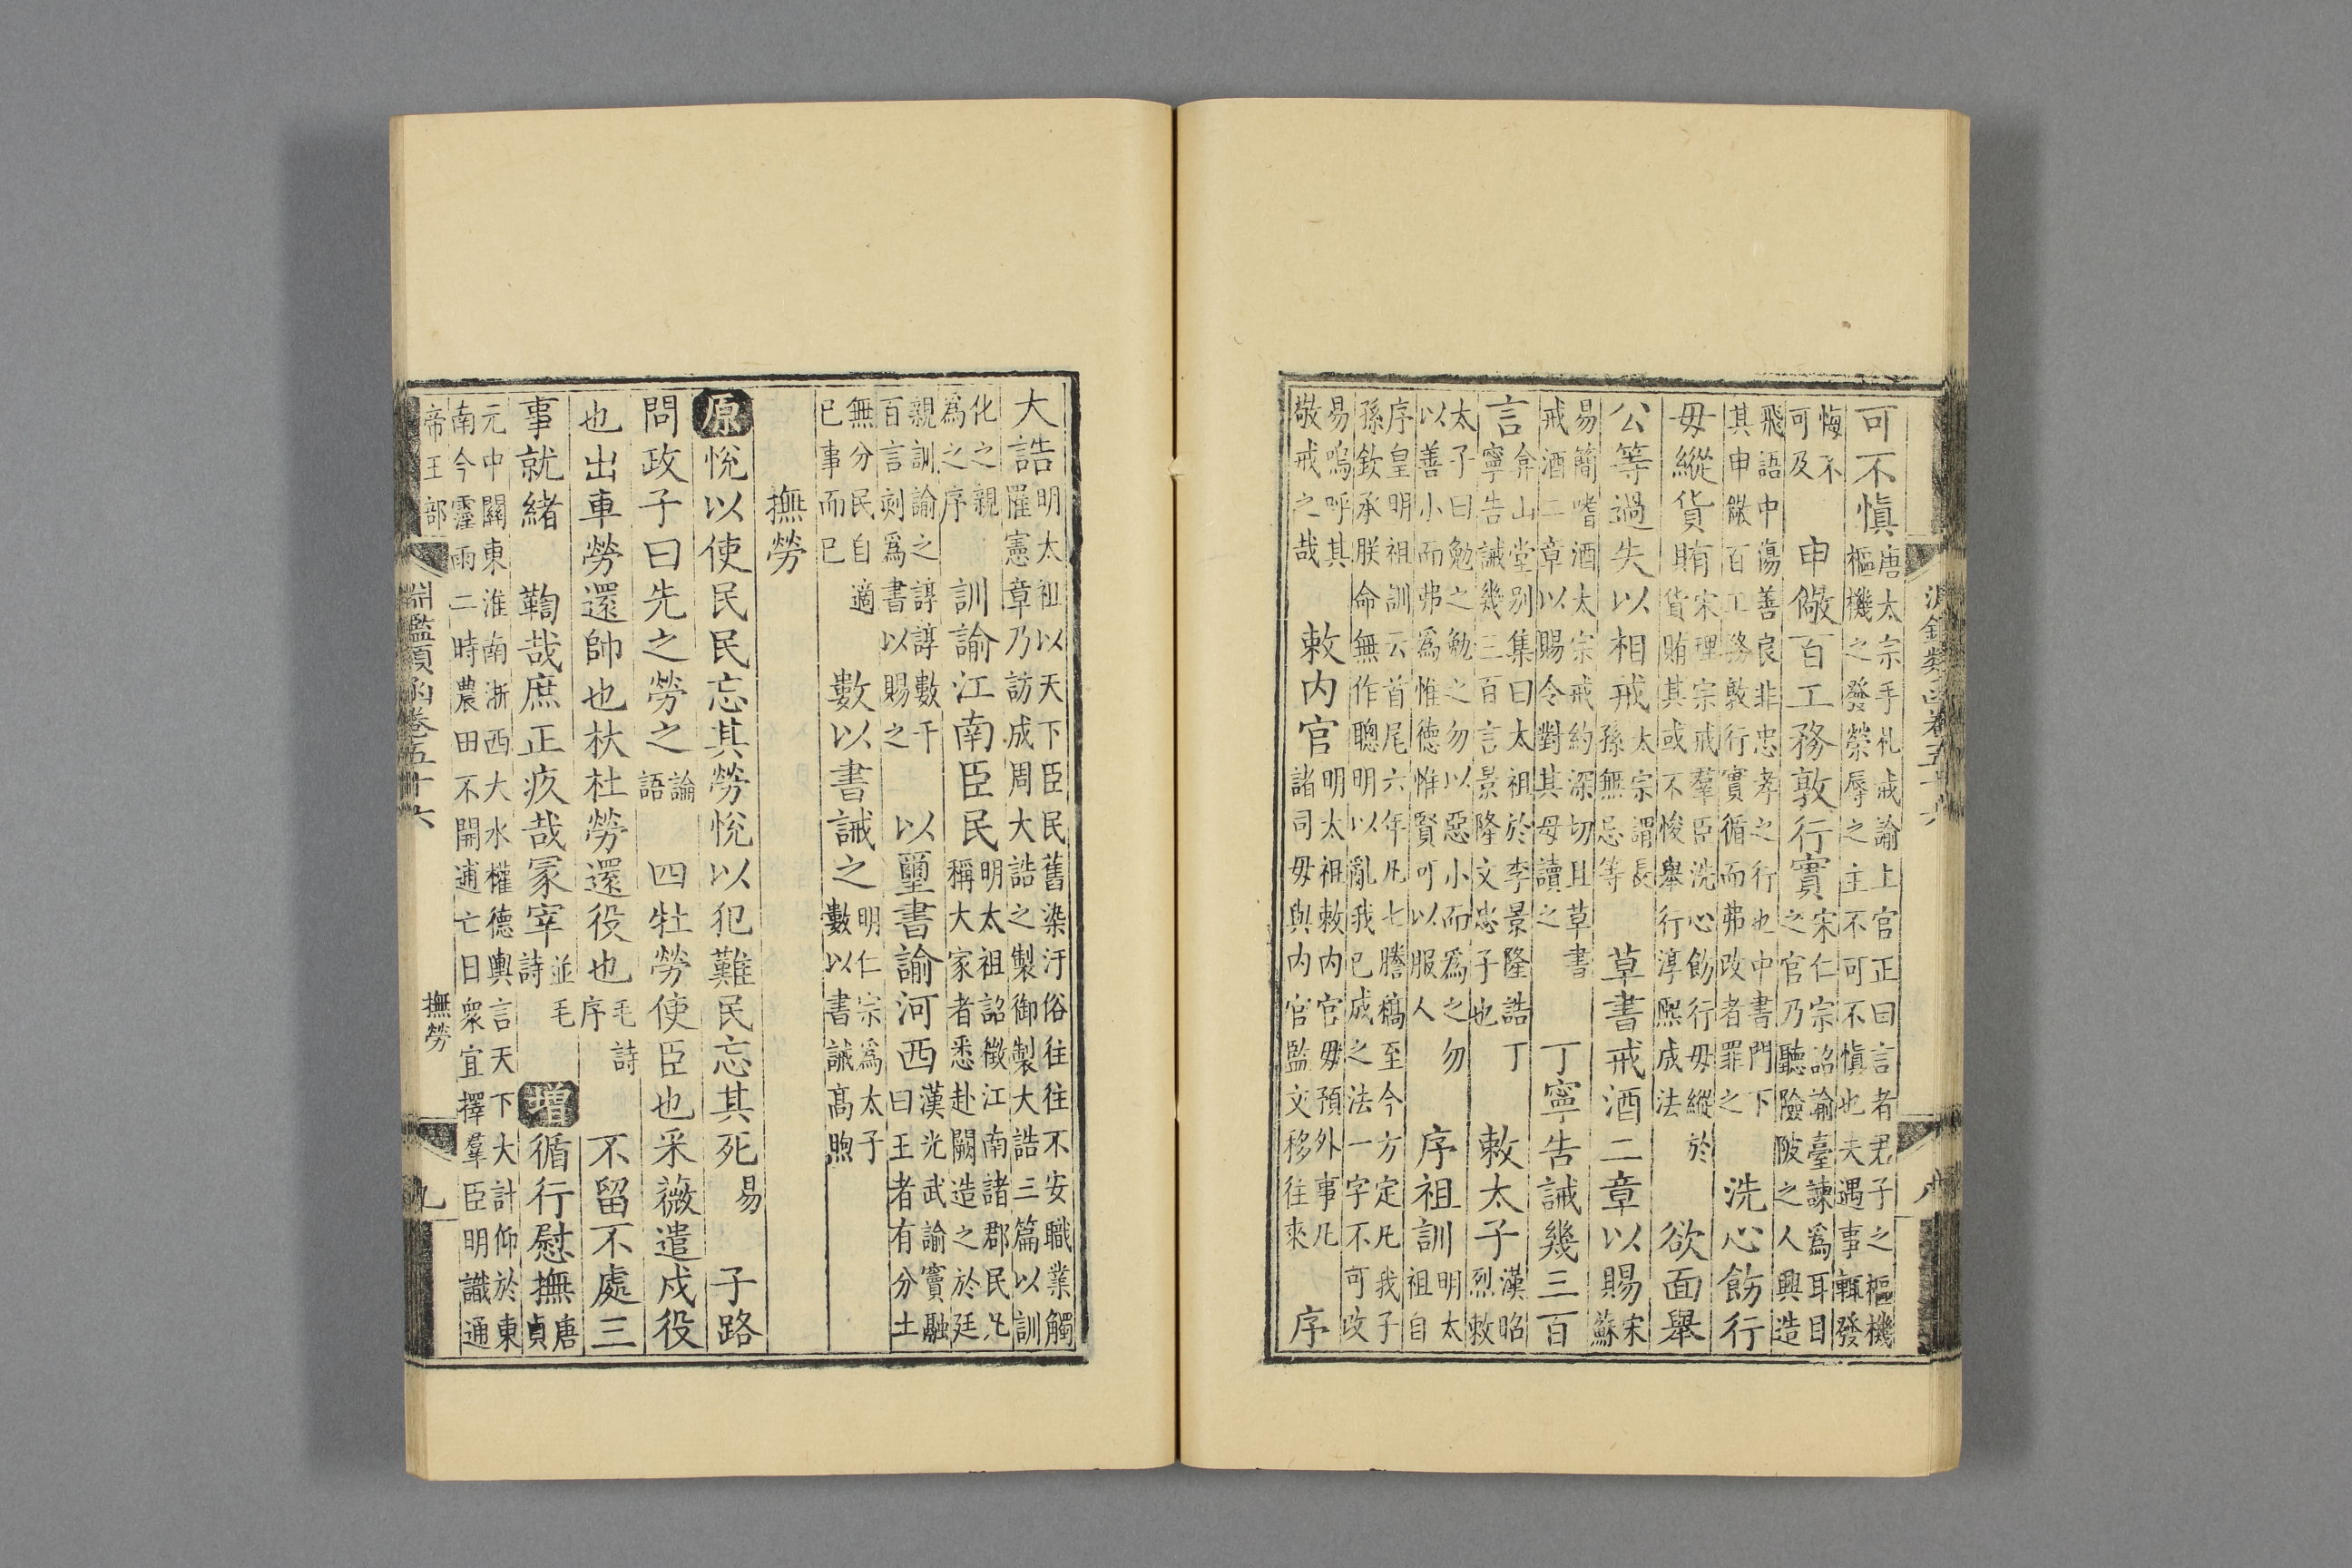 淵鑑類函卷五十六 八
可不愼唐太宗手札戒諭上官正曰言者君子之樞機樞機之發榮辱之主不可不愼也夫遇事輒發
悔不可及 申儆百工務敦行實宋仁宗詔諭臺諫爲耳目之官乃聽險陂之人興造
飛語中傷善良非忠孝之行也中書門下其申儆百工務敦行實循而弗改者罪之 洗心飭行
毋縱貨賄宋理宗戒羣臣洗心飭行毋縱於貨賄其或不悛舉行淳熙成法 欲面舉
公等過失以相戒太宗謂長孫無忌等 草書戒酒二章以賜宋蘇
易簡嗜酒太宗戒約深切且草書戒酒二章以賜令對其母讀之 丁寧告誡幾三百
言弇山堂别集曰太祖於李景隆誥丁寧告誡幾三百言景隆文忠子也 敕太子漢昭烈敕
太子曰勉之勉之勿以惡小而爲之勿以善小而弗爲惟德惟賢可以服人 序祖訓明太祖自
序皇明祖訓云首尾六年凡七謄稿至今方定凡我子孫欽承朕命無作聰明以亂我已成之法一字不可改
易嗚呼其敬戒之哉 敕内官明太祖敕内官毋預外事凡諸司毋與内官監文移往來 序
大誥明太祖以天下臣民舊染汙俗往往不安職業觸罹憲章乃訪成周大誥之製御製大誥三篇以訓
化之親爲之序 訓諭江南臣民明太祖詔徵江南諸郡民凡稱大家者悉赴闕造之於廷
親訓諭之諄諄數千百言刻爲書以賜之 以璽書諭河西漢光武諭竇融曰王者有分土
無分民自適已事而已 數以書誡之明仁宗爲太子數以書誡高煦
撫勞
原悅以使民民忘其勞悅以犯難民忘其死易 子路
問政子曰先之勞之論語 四牡勞使臣也采薇遣戍役
也出車勞還帥也杕杜勞還役也毛詩序 不留不處三
事就緒 鞫哉庶正疚哉冢宰並毛詩 增循行慰撫唐貞
元中關東淮南浙西大水權德輿言天下大計仰於東南今霪雨二時農田不開逋亡日衆宜擇羣臣明識通
帝王部 淵鑑類函卷五十六 撫勞 九